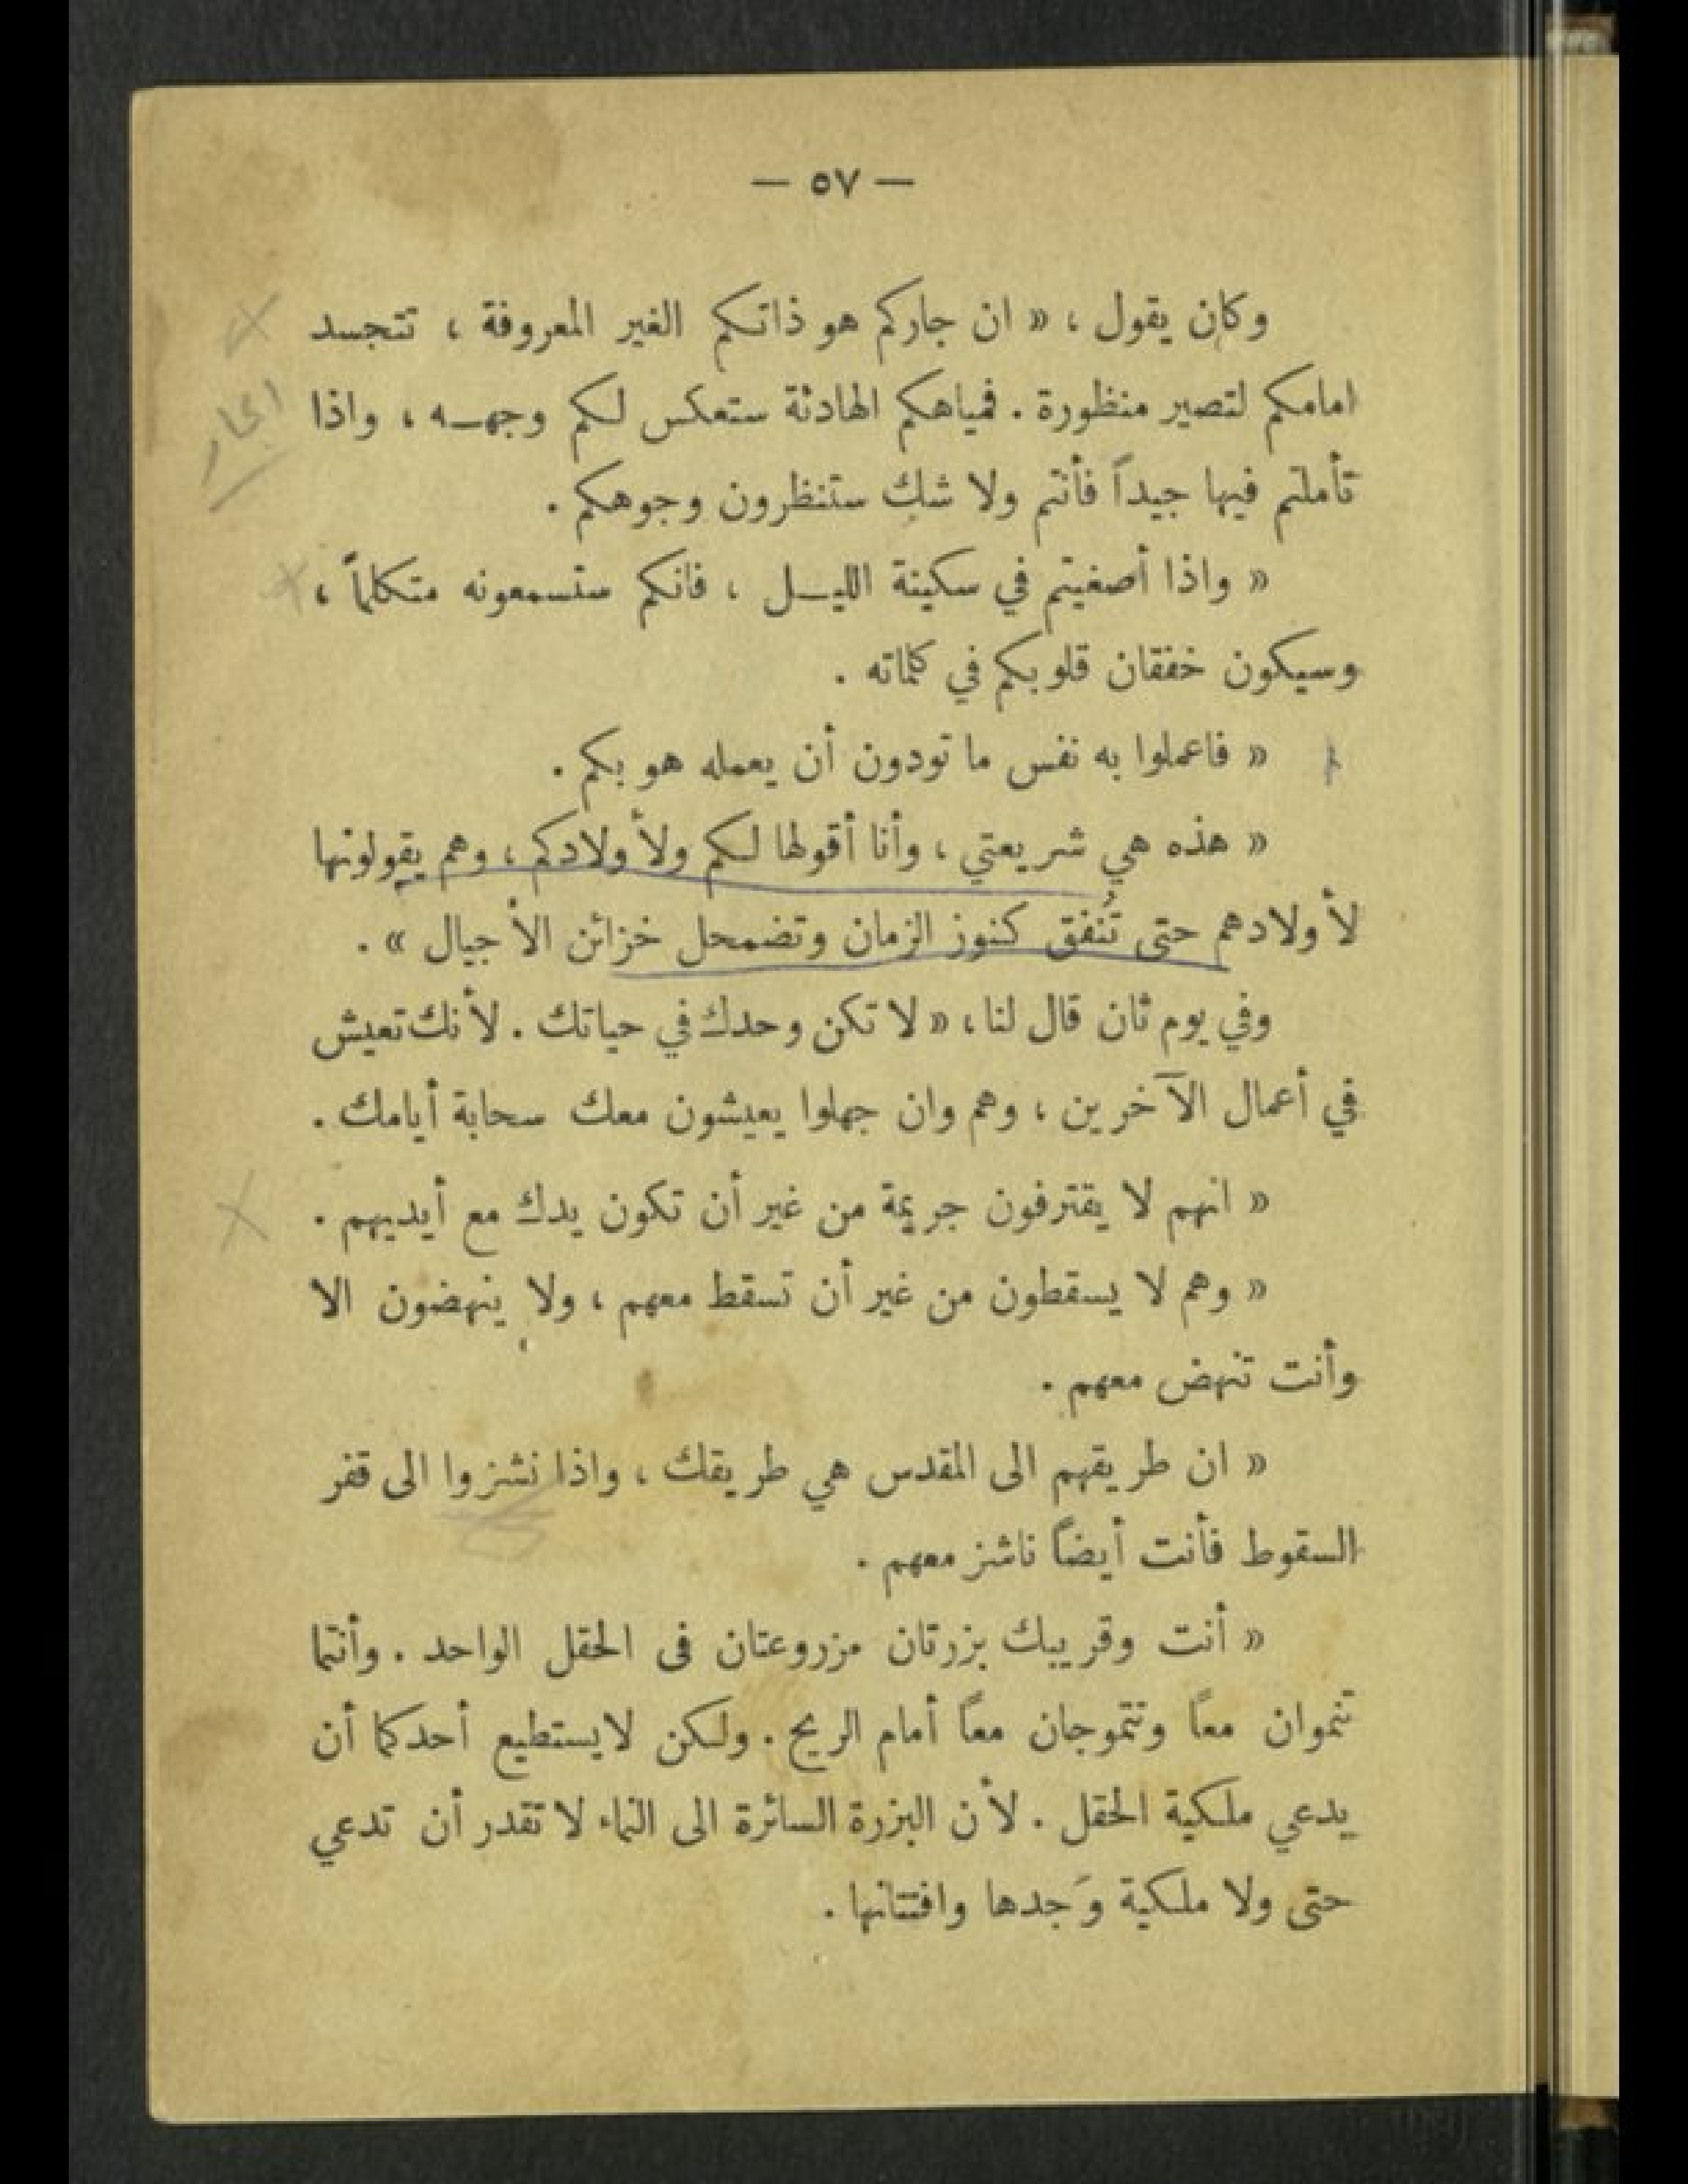 — ٥٧ —
وكان يقول ، « ان جاركم هو ذاتكم الغير المعروفة ، تتجسد
امامكم لتصير منظورة . فمياهكم الهادئة ستعكس لكم وجهه ، واذا
تأملتم فيها جيداً فأنتم ولا شك ستنظرون وجوهكم .
« واذا أصغيتم في سكينة الليل ، فانكم ستسمعونه متكلماً ،
وسيكون خفقان قلوبكم في كلماته .
« فاعملوا به نفس ما تودون أن يعمله هو بكم .
« هذه هي شريعتي ، وأنا أقولها لكم ولأولادكم ، وهم يقولونها
لأولادهم حتى تُنفق كنوز الزمان وتضمحل خزائن الأجيال » .
وفي يوم ثان قال لنا ، « لا تكن وحدك في حياتك . لأنك تعيش
في أعمال الآخرين ، وهم وان جهلوا يعيشون معك سحابة أيامك .
« انهم لا يقترفون جريمة من غير أن تكون يدك مع أيديهم .
« وهم لا يسقطون من غير أن تسقط معهم ، ولا ينهضون الا
وأنت تنهض معهم .
« ان طريقهم الى المقدس هي طريقك ، واذا نشزوا الى قفر
السقوط فأنت أيضاً ناشز معهم .
« أنت وقريبك بزرتان مزروعتان في الحقل الواحد . وأنتما
تنموان معاً وتتموجان معاً أمام الريح . ولكن لا يستطيع أحدكما أن
يدعي ملكية الحقل . لأن البزرة السائرة الى النماء لا تقدر أن تدعي
حتى ولا ملكية وَجدها وافتتانها .
الجار